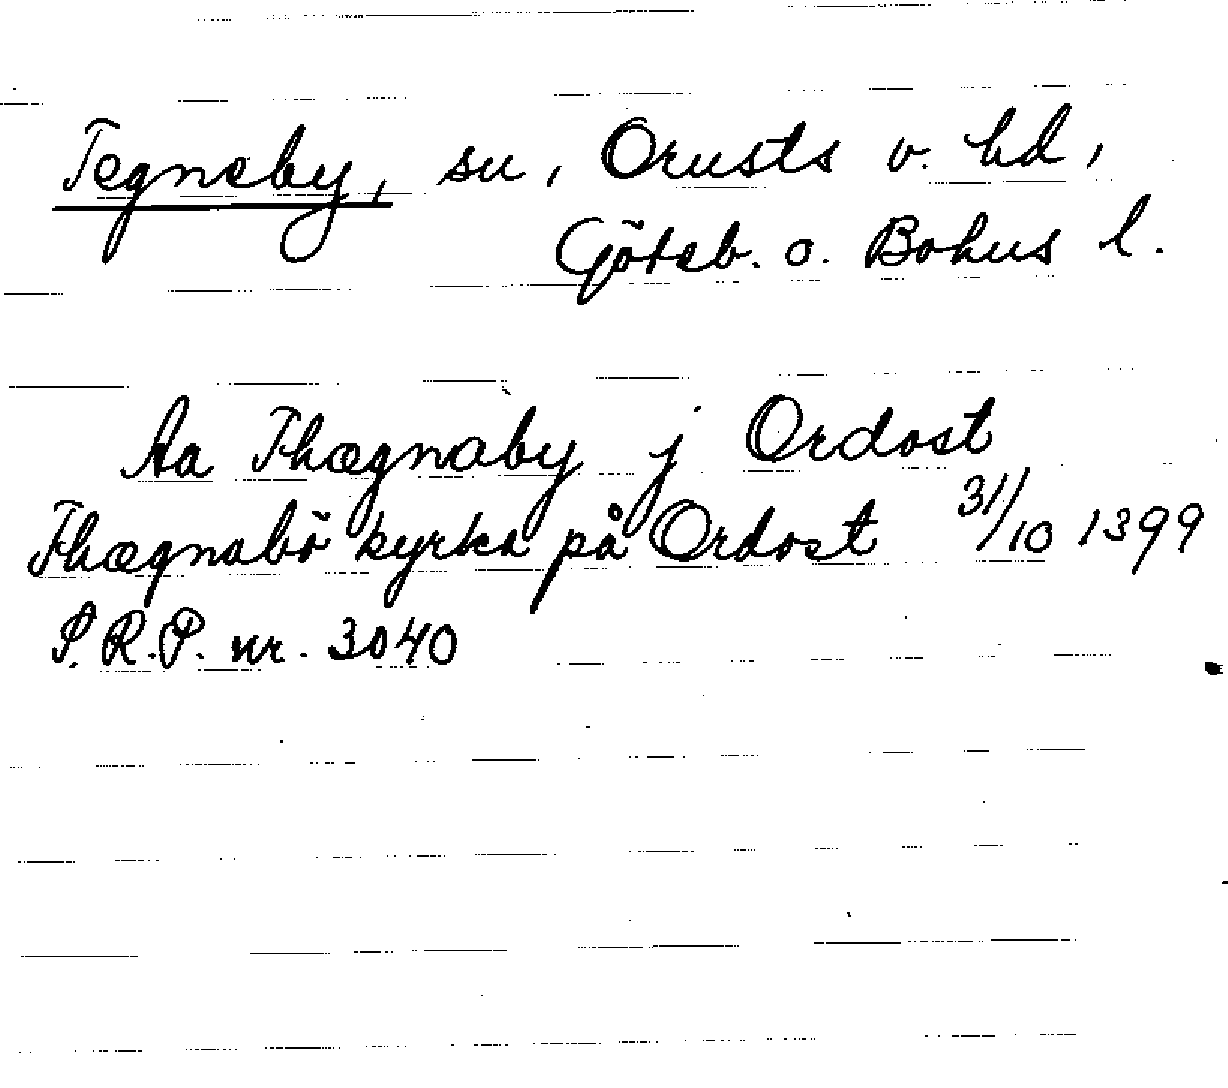 Tegneby, sn, Orusts v. hd,
Göteb. o. Bohus l.
Aa Thægnaby j Ordost
Thægnabö kyrka på Ordost 31/10 1399
S.R.P. nr. 3040